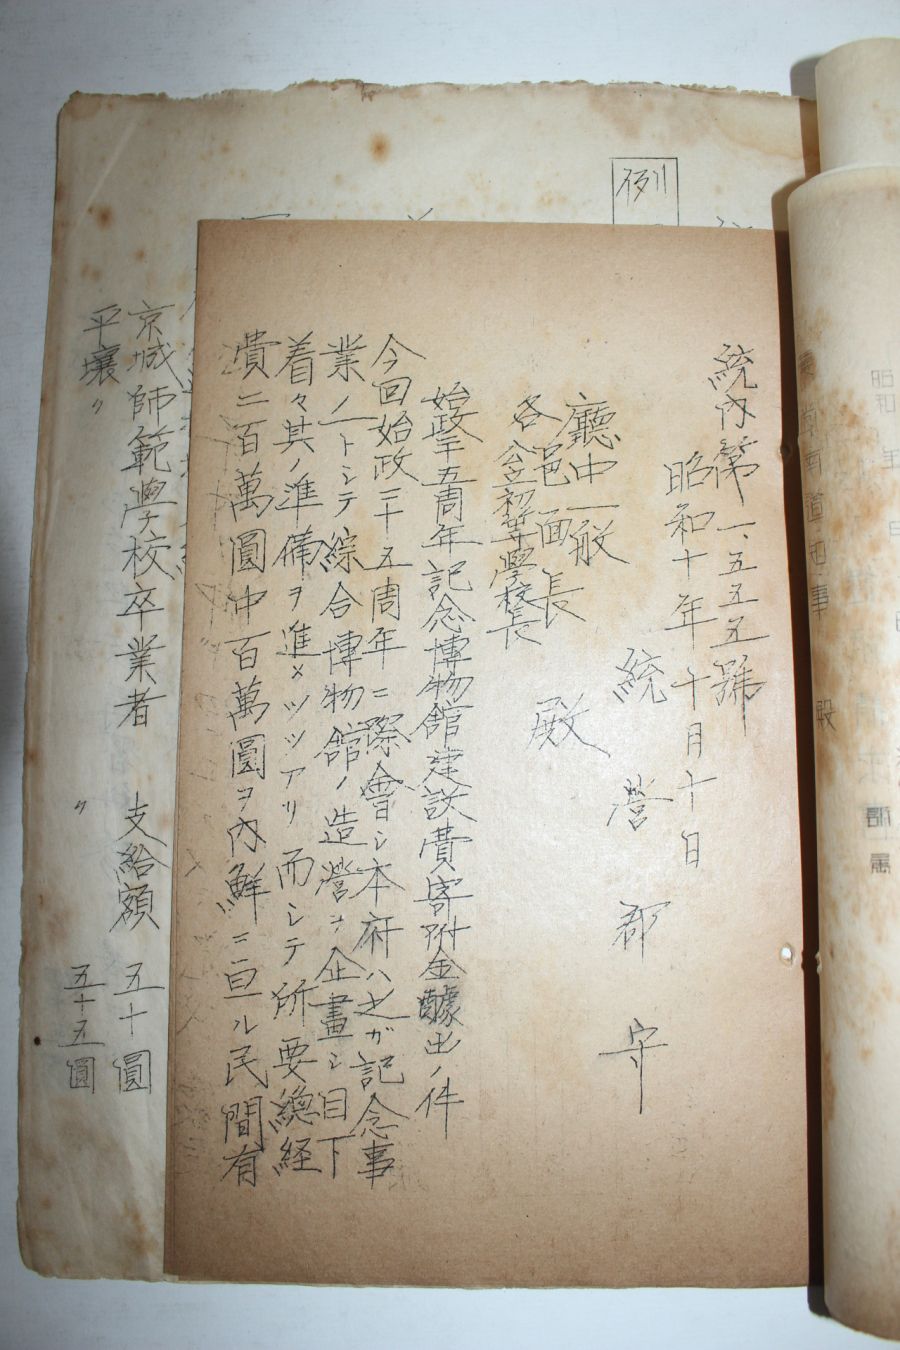 統內第一、五五五號
昭和十年十月十日
統營郡守
廳中一般
各邑面長
各公立初等學校長
殿
始政二十五周年記念博物館建設費寄附金醵出ノ件
今回始政二十五周年ニ際會シ本府ハ之ガ記念事
業ノ一トシテ綜合博物館ノ造營ヲ企畫シ目下
着々其ノ準備ヲ進メツツアリ而シテ所要總経
費二百萬圓中百萬圓ヲ內鮮ニ亘ル民間有
例
京城師範學校卒業者 支給額 五十圓
平壤〃 〃 五十五圓